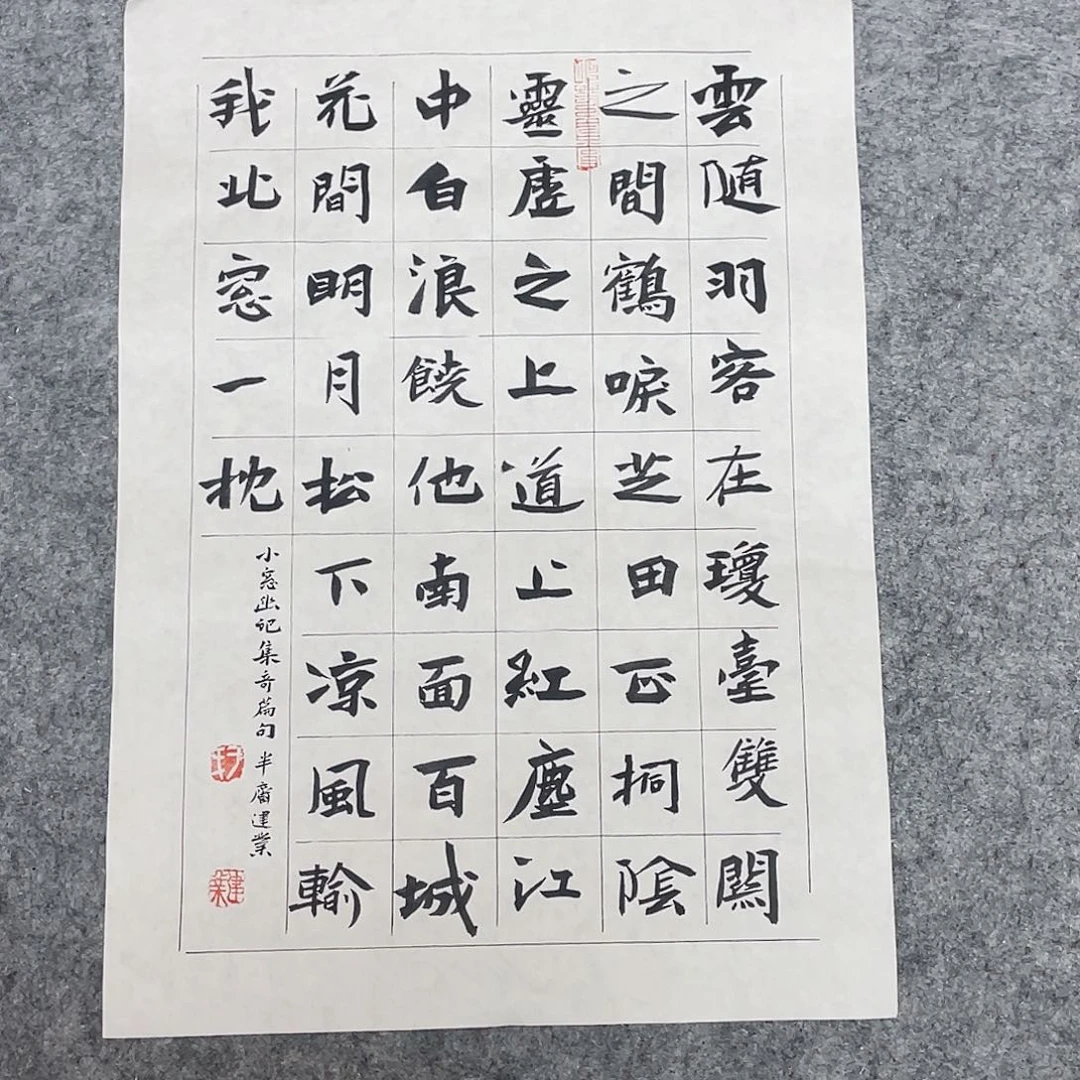 雲随羽客在瓊臺雙闕
之間鶴唳芝田正桐陰
靈虛之上道上紅塵江
中白浪饒他南面百城
花間明月松下凉風輸
我北窓一枕
小窓幽記集奇篇句 半齋建業